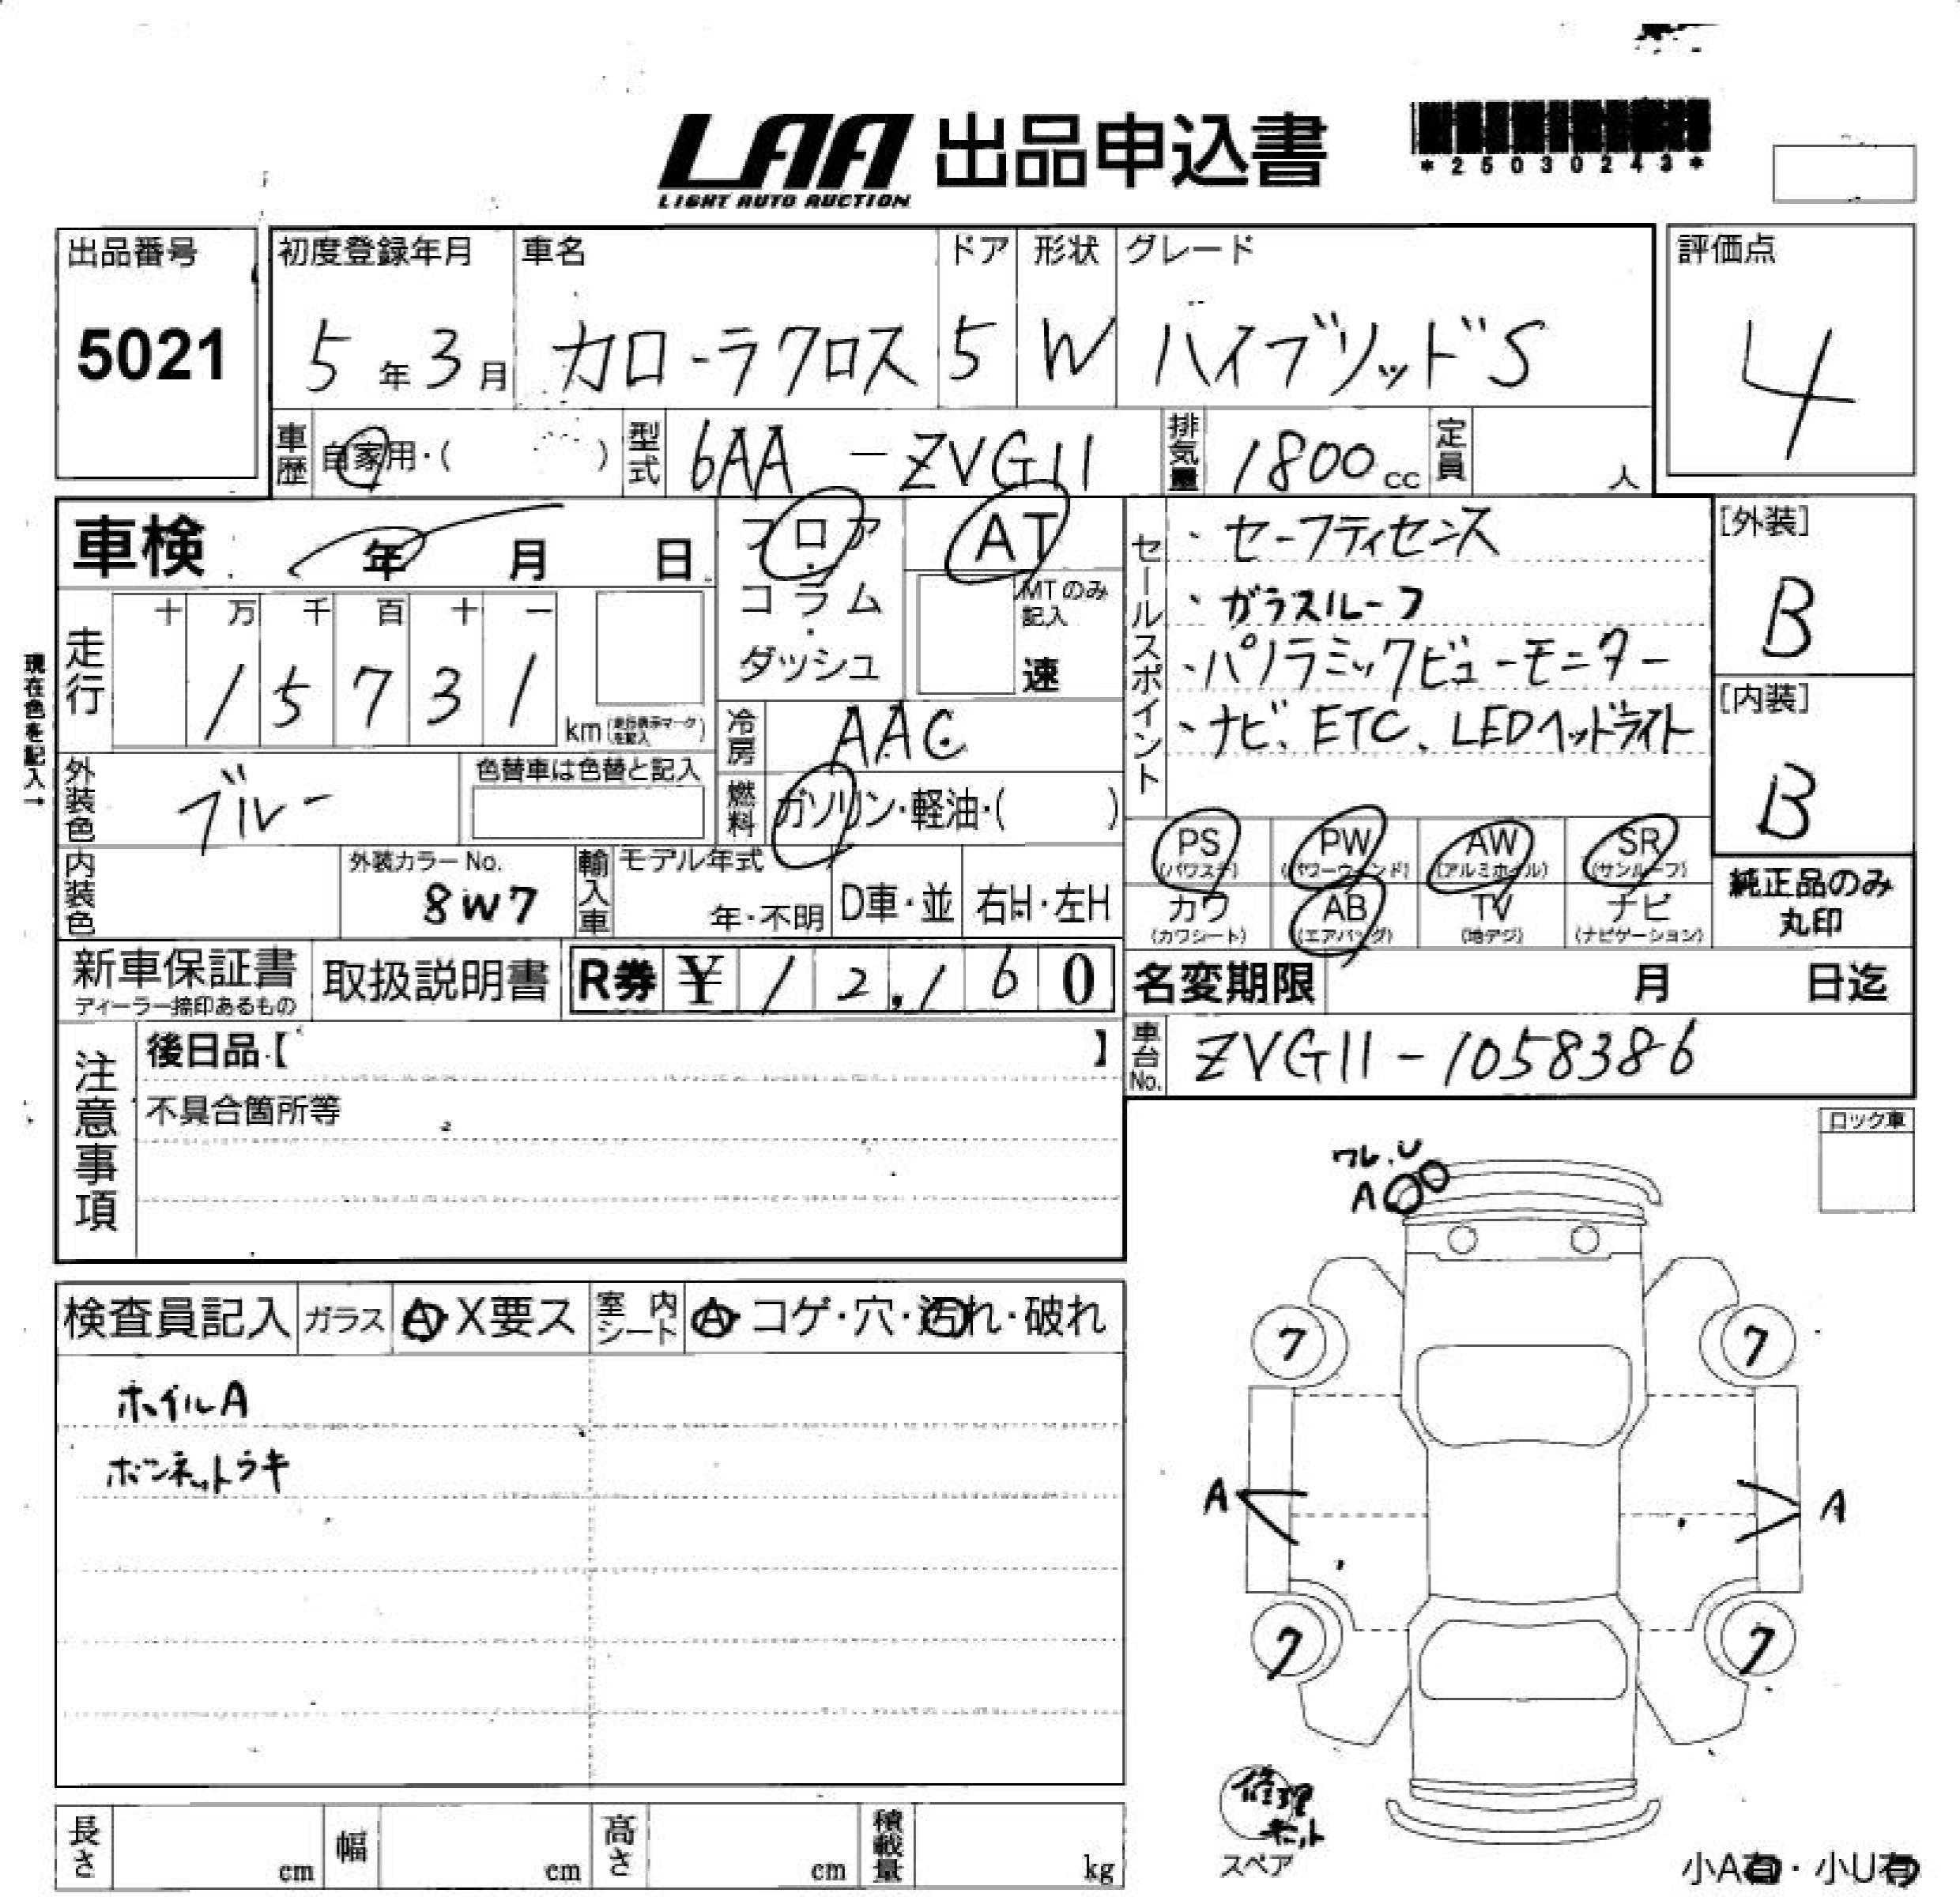 LAA 出品申込書
LIGHT AUTO AUCTION
*25030243*
出品番号 初度登録年月 車名 ドア 形状 グレード 評価点
5021 5年3月 カローラクロス 5 W ハイブリッドS 4
車歴 自家用・( ) 型式 6AA-ZVG11 排気量 1800cc 定員 人
車検 年 月 日 フロア・コラム・ダッシュ AT
MTのみ記入 速
現在色を記入→
走行 十 万 千 百 十 一
1 5 7 3 1 km
冷房 AAC
外装色 ブルー 色替車は色替と記入
燃料 ガソリン・軽油・( )
内装色 外装カラーNo. 8W7 輸入車 モデル年式 年・不明 D車・並 右H・左H
セールスポイント
・セーフティセンス
・ガラスルーフ
・パノラミックビューモニター
・ナビ、ETC、LEDヘッドライト
[外装]
B
[内装]
B
PS (パワステ) PW (パワーウィンド) AW (アルミホイル) SR (サンルーフ)
カワ (カワシート) AB (エアバッグ) TV (地デジ) ナビ (ナビゲーション)
純正品のみ
丸印
新車保証書 ディーラー捺印あるもの 取扱説明書 R券 ¥ 12,160
名変期限 月 日迄
車台No. ZVG11-1058386
注意事項
後日品【 】
不具合箇所等
ロック車
ワレ.U
A
検査員記入 ガラス A・X要ス 室内シート A・コゲ・穴・汚れ・破れ
ホイルA
ボンネットウキ
7 7
A A
7 7
修理キット
スペア
小A有・小U有
長さ cm 幅 cm 高さ cm 積載量 kg